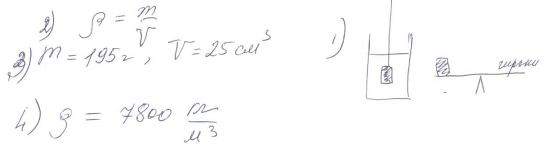 2) ρ = m/V
3) m = 195 г, V = 25 см³
4) ρ = 7800 кг/м³
1)
гирьки